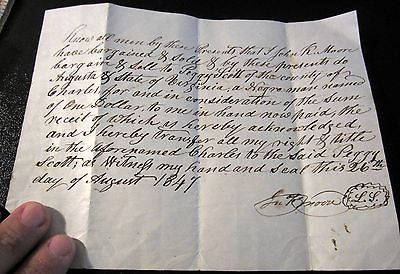 Know all men by these Presents that I John K. Moore
have bargained & Sold & by these presents do
bargain & Sell to Peggy Scott of the county of
Augusta & State of Virginia, a Negro man named
Charles for and in consideration of the Sum
of One Dollar, to me in hand now paid, the
receit of which is hereby acknowledged
and I hereby transfer all my right & title
in the aforenamed Charles to the Said Peggy
Scott, as Witness my hand and Seal this 26th
day of August 1847
Jno K Moore L.S.